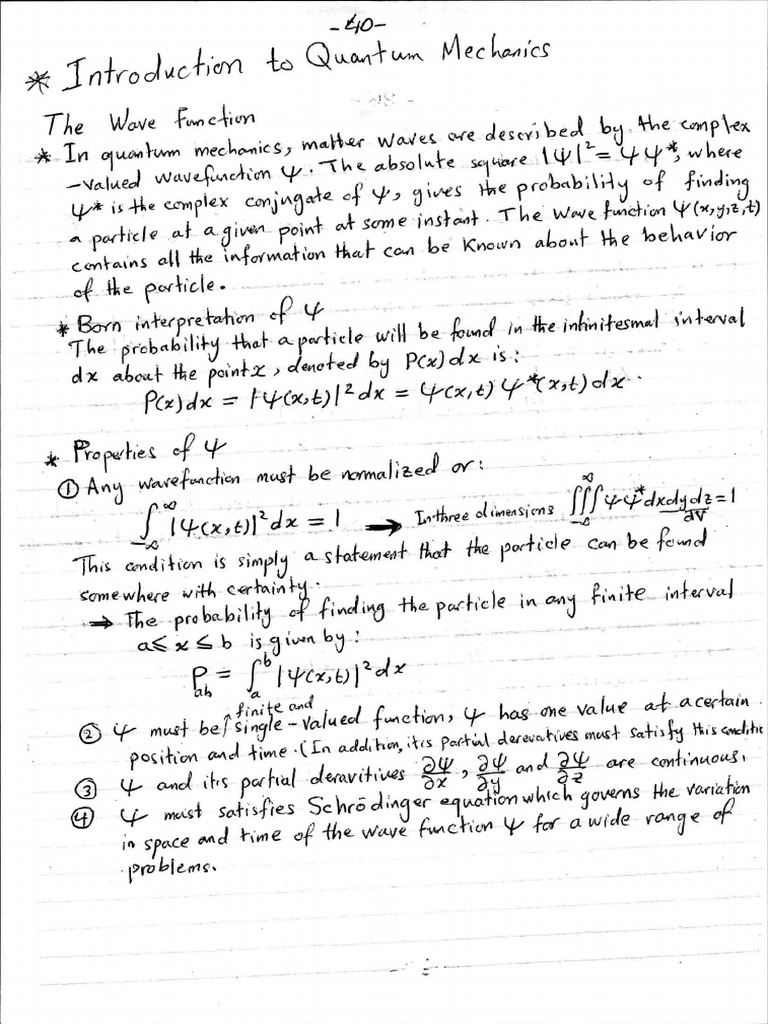 -40-
* Introduction to Quantum Mechanics
The Wave Function
* In quantum mechanics, matter waves are described by the complex
-valued wavefunction Ψ. The absolute square |Ψ|² = ΨΨ*, where
Ψ* is the complex conjugate of Ψ, gives the probability of finding
a particle at a given point at some instant. The wave function Ψ(x,y,z,t)
contains all the information that can be known about the behavior
of the particle.
* Born interpretation of Ψ
The probability that a particle will be found in the infinitesmal interval
dx about the point x, denoted by P(x)dx is:
P(x)dx = |Ψ(x,t)|² dx = Ψ(x,t) Ψ*(x,t) dx.
* Properties of Ψ
① Any wavefunction must be normalized or:
∫_{-∞}^{∞} |Ψ(x,t)|² dx = 1 → In three dimensions ∭_{-∞}^{∞} ΨΨ* dxdydz = 1
dV
This condition is simply a statement that the particle can be found
somewhere with certainty.
→ The probability of finding the particle in any finite interval
a ≤ x ≤ b is given by:
P_{ab} = ∫_a^b |Ψ(x,t)|² dx
finite and
② Ψ must be single-valued function, Ψ has one value at a certain
position and time. (In addition, it's partial derevatives must satisfy this conditic
③ Ψ and it's partial deravitives ∂Ψ/∂x, ∂Ψ/∂y and ∂Ψ/∂z are continuous.
④ Ψ must satisfies Schrödinger equation which governs the variation
in space and time of the wave function Ψ for a wide range of
problems.